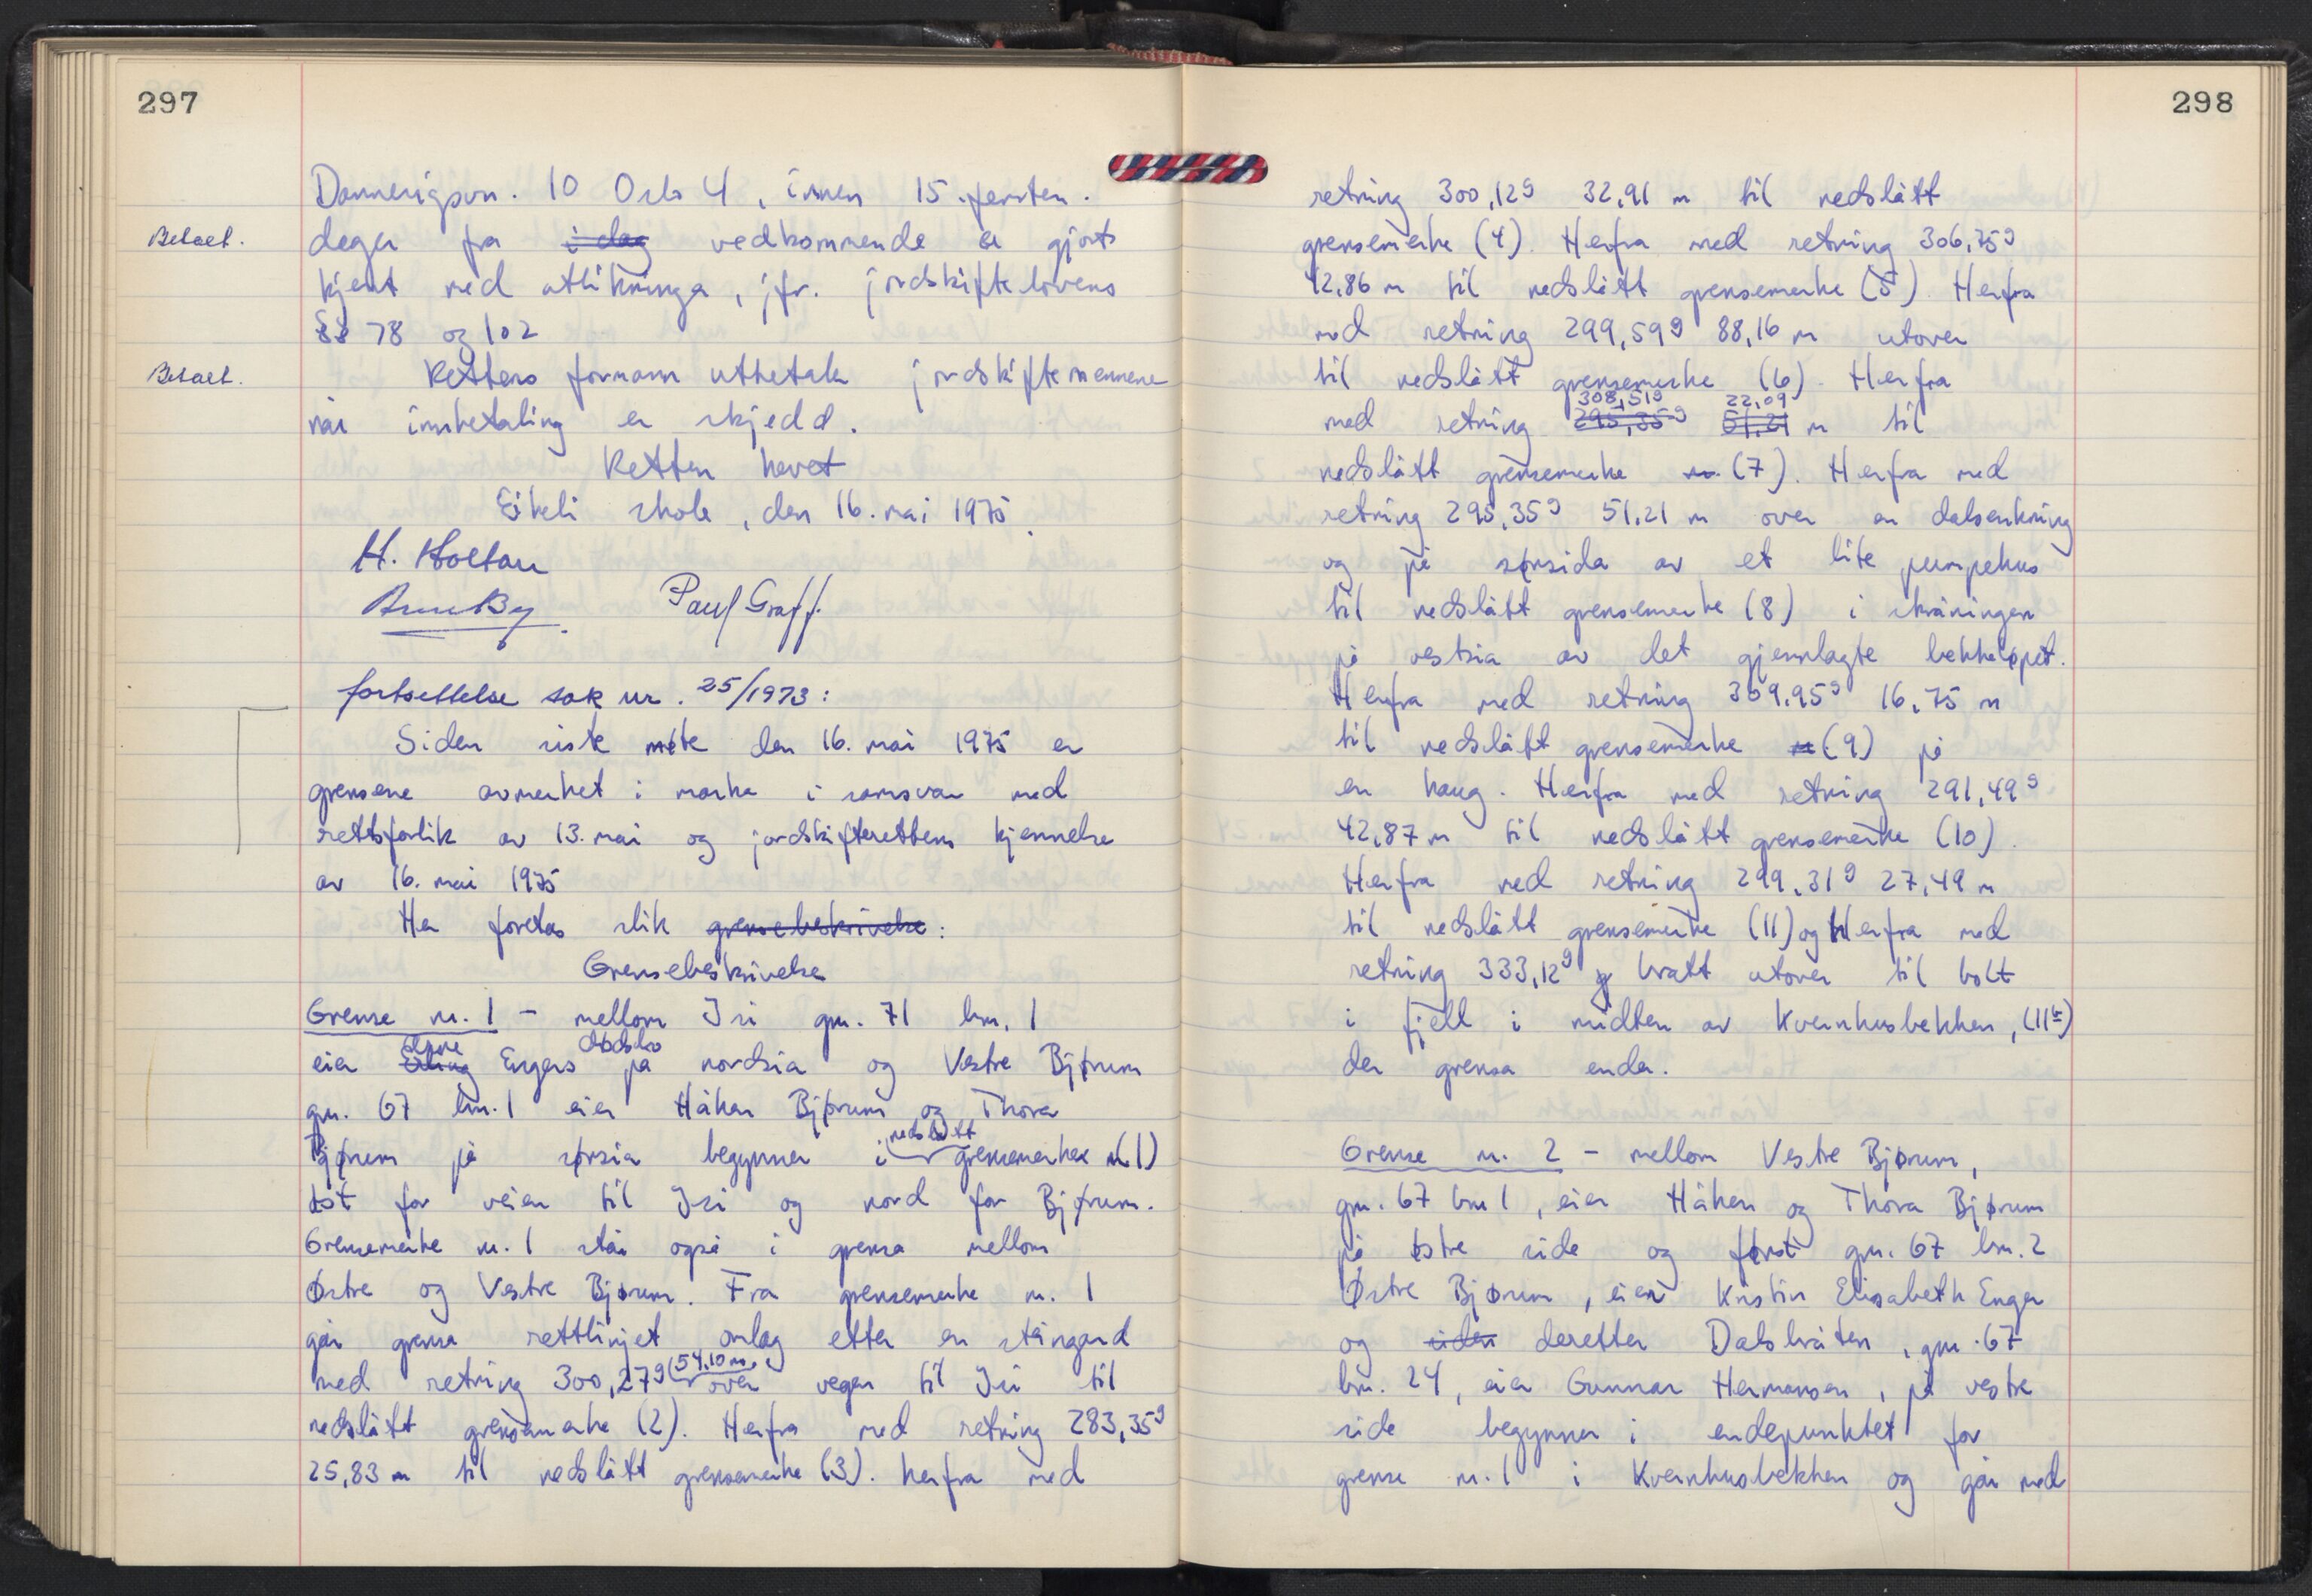 297
Dronningsgn. 10 Oslo 4, innen 15 femten.
Betalt.
dager fra i dag vedkommende er gjort
kjent med utlikninga, jfr. jordskiftelovens
§§ 78 og 102
Betalt.
Rettens formann utbetaler jordskiftemennene
når innbetaling er skjedd.
Retten hevet
Eikeli skole, den 16. mai 1975.
H. Holtan
Arne By Paul Graff.
fortsettelse sak nr. 25/1973:
Siden siste møte den 16. mai 1975 er
grensene avmerket i marka i samsvar med
rettsforlik av 13. mai og jordskifterettens kjennelse
av 16. mai 1975
Her foretas slik grensebeskrivelse:
Grensebeskrivelse
Grense nr. 1 - mellom Isi gnr. 71 bnr. 1
eier Erling Engers dødsbo på nordsia og Vestre Bjørum
gnr. 67 bnr. 1 eier Håken Bjørum og Thora
Bjørum på sørsia begynner i nedslått grensemerke nr. (1)
øst for veien til Isi og nord for Bjørum.
Grensemerke nr. 1 står også i grensa mellom
Østre og Vestre Bjørum. Fra grensemerke nr. 1
går grensa rettlinjet omlag etter en steingard
med retning 300,27g (54,10 m) over vegen til Isi til
nedslått grensemerke (2). Herfra med retning 283,35g
25,83 m til nedslått grensemerke (3). herfra med
298
retning 300,12g 32,91 m til nedslått
grensemerke (4). Herfra med retning 306,75g
42,86 m til nedslått grensemerke (5). Herfra
med retning 299,59g 88,16 m utover
til nedslått grensemerke (6). Herfra
308,51g 22,09
med retning 295,35g 51,21 m til
nedslått grensemerke nr. (7). Herfra med
retning 295,35g 51,21 m over en dalsenkning
og på sørsida av et lite pumpehus
til nedslått grensemerke (8) i skråningen
på vestsia av det gjenlagte bekkeløpet.
Herfra med retning 309,95g 16,75 m
til nedslått grensemerke (9) på
en haug. Herfra med retning 291,49g
42,87 m til nedslått grensemerke (10).
Herfra med retning 299,31g 27,49 m
til nedslått grensemerke (11) og Herfra med
retning 333,12g bratt utover til bolt
i fjell i midten av Kvernhusbekken, (11b)
der grensa ender.
Grense nr. 2 - mellom Vestre Bjørum,
gnr. 67 bnr 1, eier Håken og Thora Bjørum
på østre side og først gnr. 67 bnr. 2
Østre Bjørum, eier Kristin Elisabeth Enger
og siden deretter Dalsbråten, gnr. 67
bnr. 24, eier Gunnar Hermansen, på vestre
side begynner i endepunktet for
grense nr. 1 i Kvernhusbekken og går med